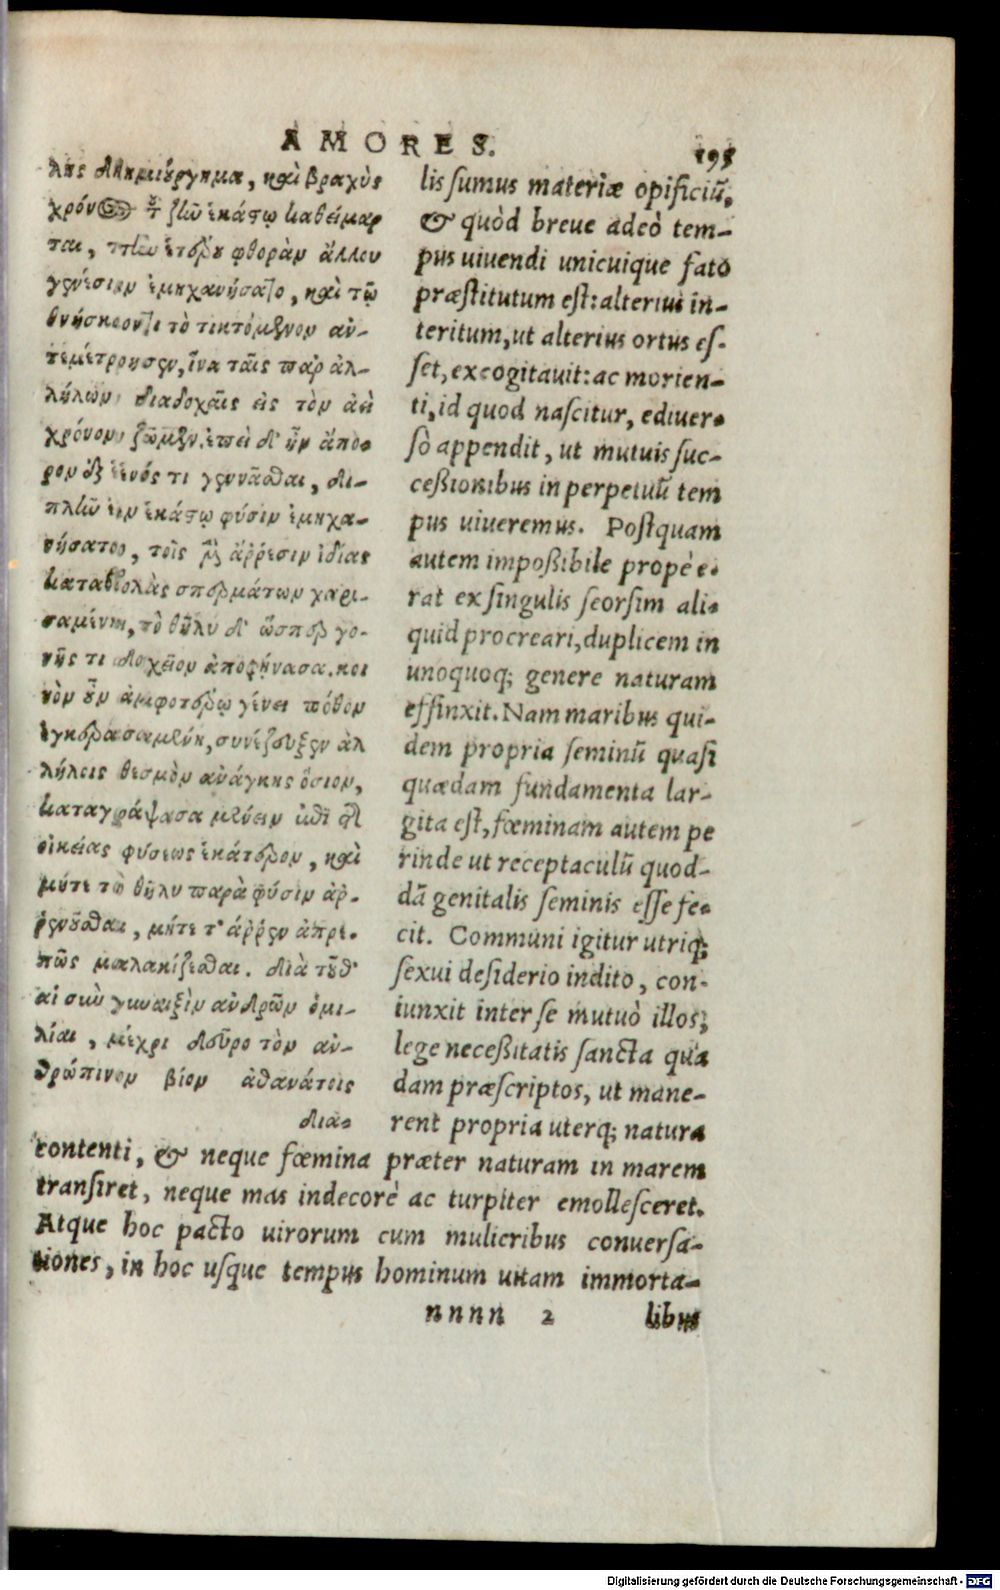 AMORES. 195
λης δημιούργημα, καὶ βραχὺς
χρόνος τοῦ ζῆν ἑκάστῳ καθείμαρ
ται, τὴν ἑτέρου φθορὰν ἄλλου
γένεσιν ἐμηχανήσατο, καὶ τῷ
θνήσκοντι τὸ τικτόμενον ἀν-
τεμέτρησεν, ἵνα ταῖς παρ' ἀλ-
λήλων διαδοχαῖς εἰς τὸν ἀεὶ
χρόνον ζῶμεν. ἐπεὶ δ' ἦν ἄπο-
ρον ἐξ ἑνός τι γεννᾶσθαι, δι-
πλῆν ἐν ἑκάστῳ φύσιν ἐμηχα-
νήσατο, τοῖς μὲν ἄῤῥεσιν ἰδίας
καταβολὰς σπερμάτων χαρι-
σαμένη, τὸ θῆλυ δ' ὥσπερ γο-
νῆς τι δοχεῖον ἀποφήνασα. κοι
νὸν οὖν ἀμφοτέρῳ γένει πόθον
ἐγκερασαμένη, συνέζευξεν ἀλ
λήλοις θεσμὸν ἀνάγκης ὅσιον,
καταγράψασα μένειν ἐπὶ τῆς
οἰκείας φύσεως ἑκάτερον, καὶ
μήτε τὸ θῆλυ παρὰ φύσιν ἀῤ-
ῥενοῦσθαι, μήτε τ' ἄῤῥεν ἀπρε-
πῶς μαλακίζεσθαι. διὰ τοῦθ'
αἱ σὺν γυναιξὶν ἀνδρῶν ὁμι-
λίαι, μέχρι δεῦρο τὸν ἀν-
θρώπινον βίον ἀθανάτοις
δια-
lis sumus materiæ opificiũ,
& quòd breue adeò tem-
pus uiuendi unicuique fato
præstitutum est: alterius in-
teritum, ut alterius ortus es-
set, excogitauit: ac morien-
ti, id quod nascitur, ediuer-
sò appendit, ut mutuis suc-
ceßionibus in perpetuũ tem
pus uiueremus. Postquam
autem impoßibile propè e-
rat ex singulis seorsim ali-
quid procreari, duplicem in
unoquoq; genere naturam
effinxit. Nam maribus qui-
dem propria seminũ quasi
quædam fundamenta lar-
gita est, fœminam autem pe
rinde ut receptaculũ quod-
dã genitalis seminis esse fe-
cit. Communi igitur utriq;
sexui desiderio indito, con-
iunxit inter se mutuò illos,
lege neceßitatis sancta qua
dam præscriptos, ut mane-
rent propria uterq; natura
contenti, & neque fœmina præter naturam in marem
transiret, neque mas indecorè ac turpiter emollesceret.
Atque hoc pacto uirorum cum mulieribus conuersa-
tiones, in hoc usque tempus hominum uitam immorta-
nnnn 2 libus
Digitalisierung gefördert durch die Deutsche Forschungsgemeinschaft - DFG